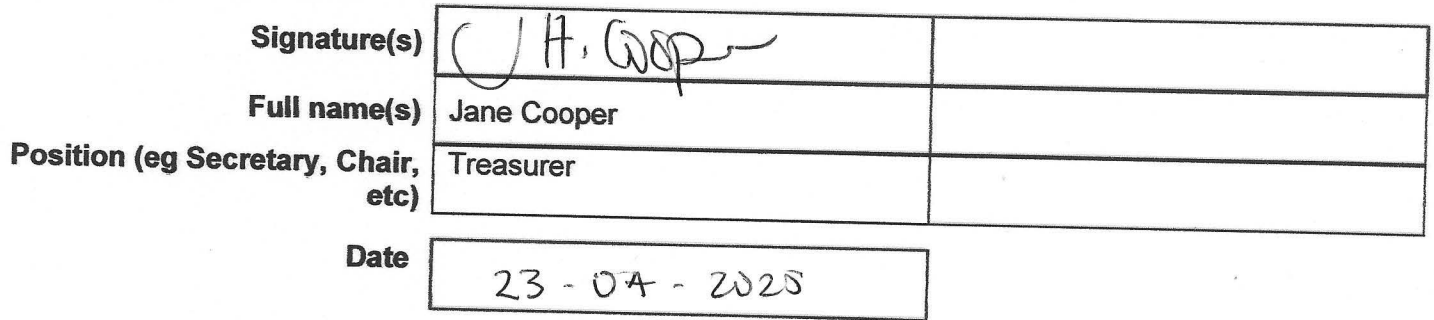 Signature(s) J H. Cooper
Full name(s) Jane Cooper
Position (eg Secretary, Chair, Treasurer
etc)
Date 23-04-2025